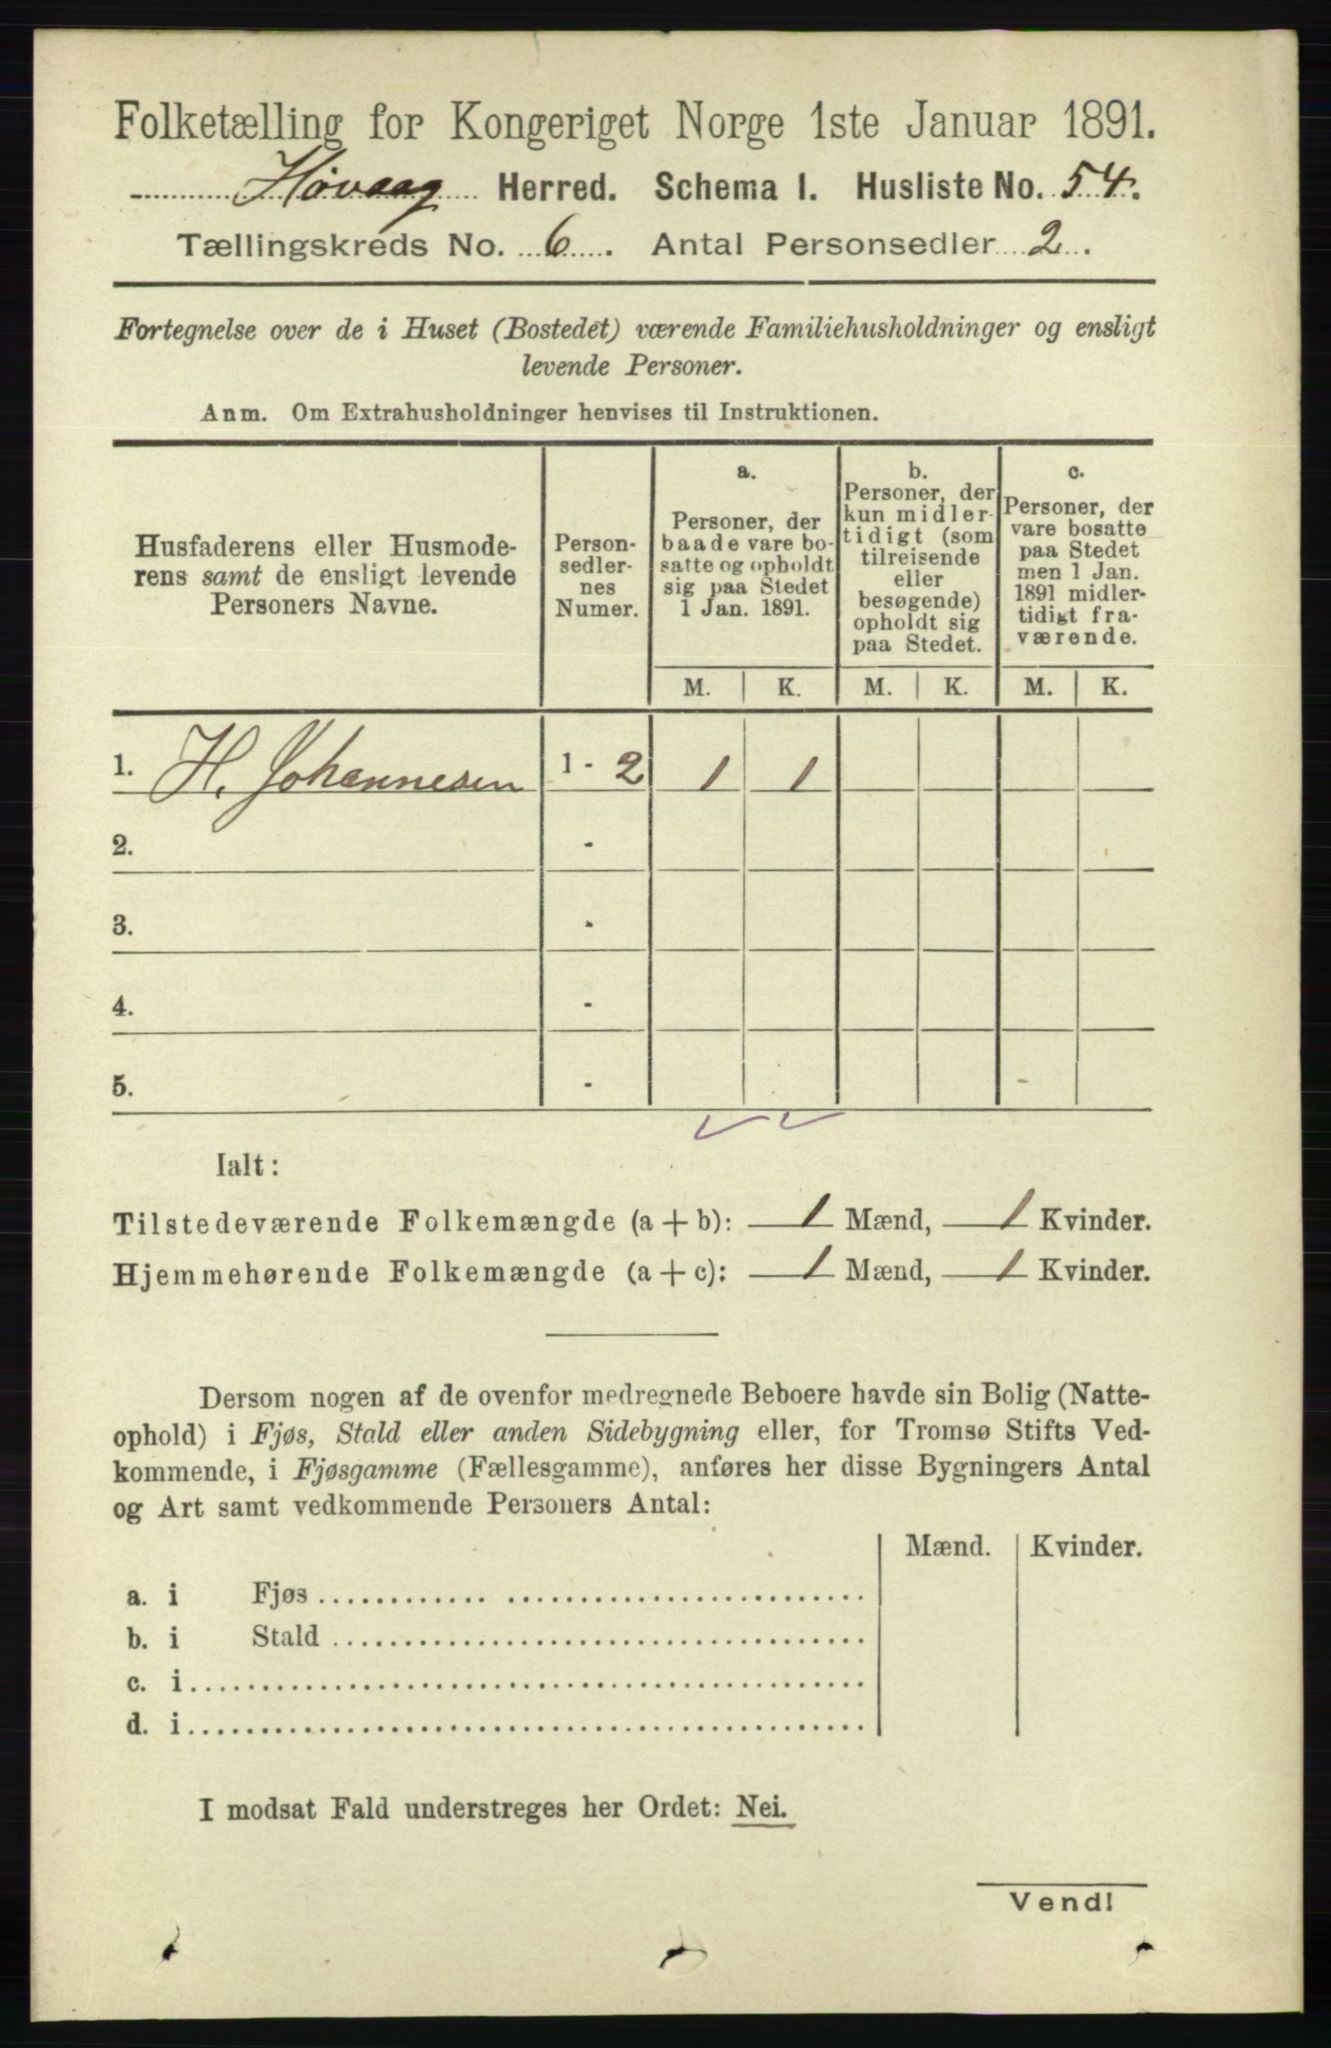 Folketælling for Kongeriget Norge 1ste Januar 1891.
Høvaag Herred. Schema I. Husliste No. 54.
Tællingskreds No. 6. Antal Personsedler 2.
Fortegnelse over de i Huset (Bostedet) værende Familiehusholdninger og ensligt
levende Personer.
Anm. Om Extrahusholdninger henvises til Instruktionen.
Husfaderens eller Husmode-
rens samt de ensligt levende
Personers Navne.
Person-
sedler-
nes
Numer.
a.
Personer, der
baade vare bo-
satte og opholdt
sig paa Stedet
1 Jan. 1891.
b.
Personer, der
kun midler-
tidigt (som
tilreisende
eller
besøgende)
opholdt sig
paa Stedet.
c.
Personer, der
vare bosatte
paa Stedet
men 1 Jan.
1891 midler-
tidigt fra-
værende.
M. K. M. K. M. K.
1. H. Johannesen 1 - 2 1 1
2. -
3. -
4. -
5. -
Ialt:
Tilstedeværende Folkemængde (a + b): 1 Mænd, 1 Kvinder.
Hjemmehørende Folkemængde (a + c): 1 Mænd, 1 Kvinder.
Dersom nogen af de ovenfor medregnede Beboere havde sin Bolig (Natte-
ophold) i Fjøs, Stald eller anden Sidebygning eller, for Tromsø Stifts Ved-
kommende, i Fjøsgamme (Fællesgamme), anføres her disse Bygningers Antal
og Art samt vedkommende Personers Antal:
Mænd. Kvinder.
a. i Fjøs
b. i Stald
c. i
d. i
I modsat Fald understreges her Ordet: Nei.
Vend!